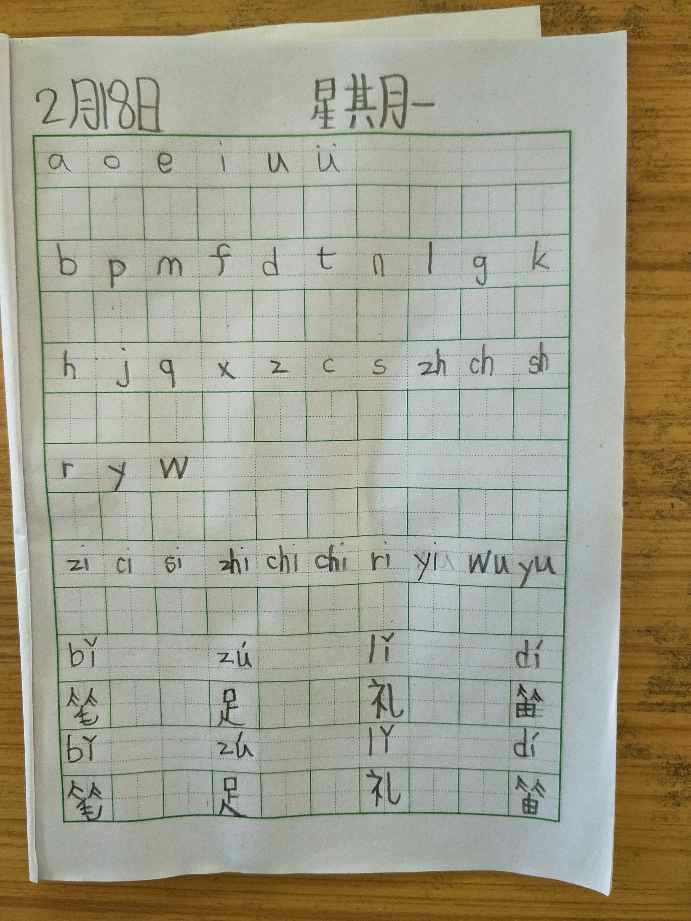 2月18日 星其月一
a o e i u ü
b p m f d t n l g k
h j q x z c s zh ch sh
r y w
zi ci si zhi chi chi ri yi wu yu
bǐ zú lǐ dí
笔 足 礼 笛
bǐ zú lǐ dí
笔 足 礼 笛